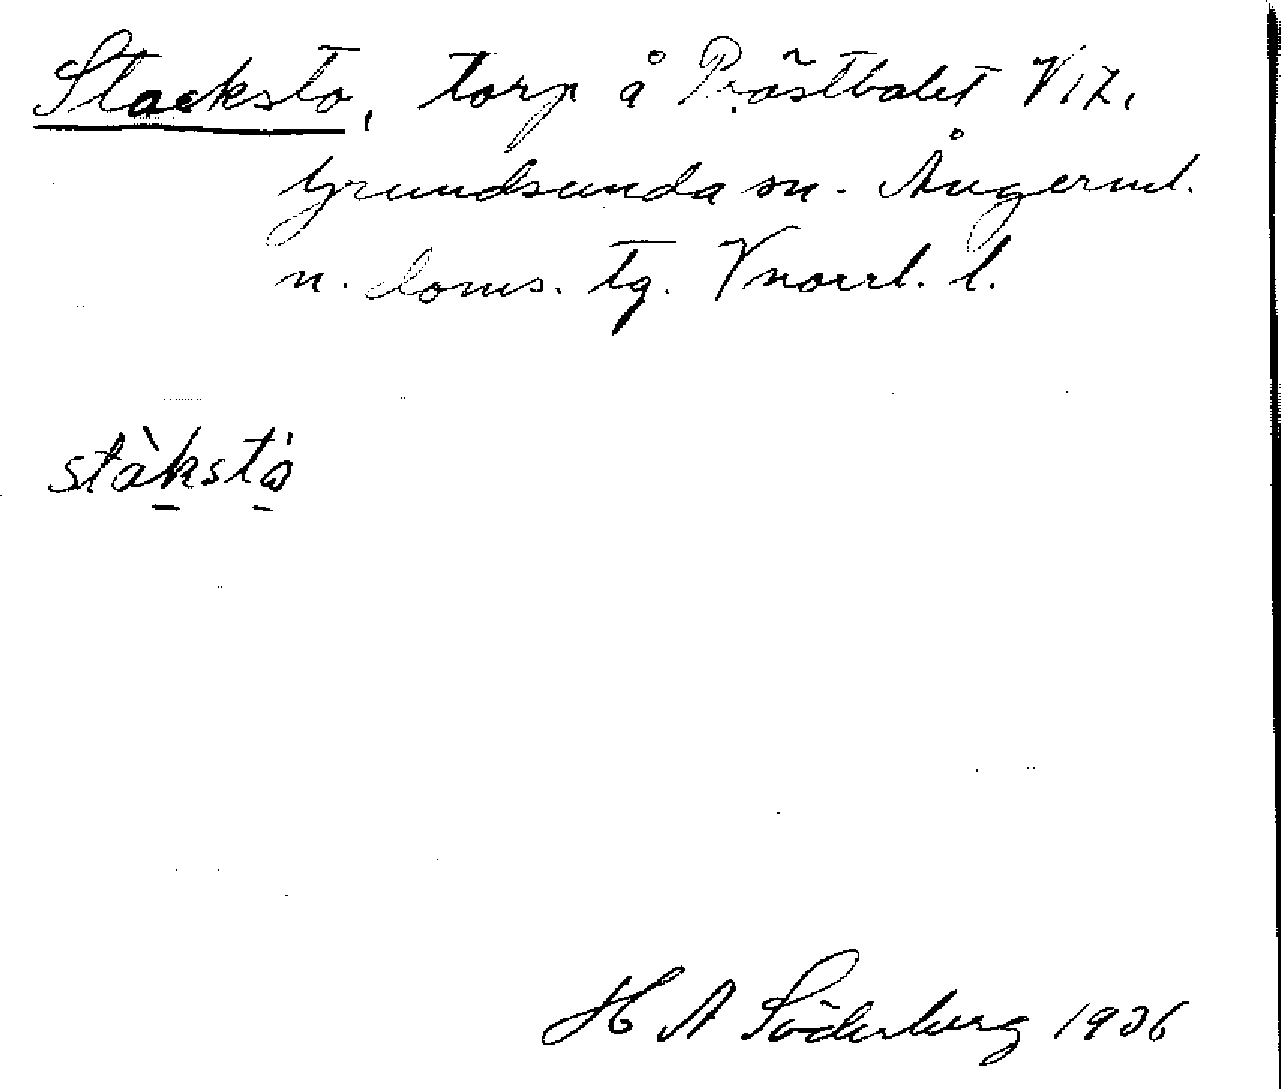 Stacksto, torp å Prästbolet V17.
Grundsunda sn. Ångerml.
n. doms. tg. Vnorrl. l.
stàkstò
H A Söderberg 1936